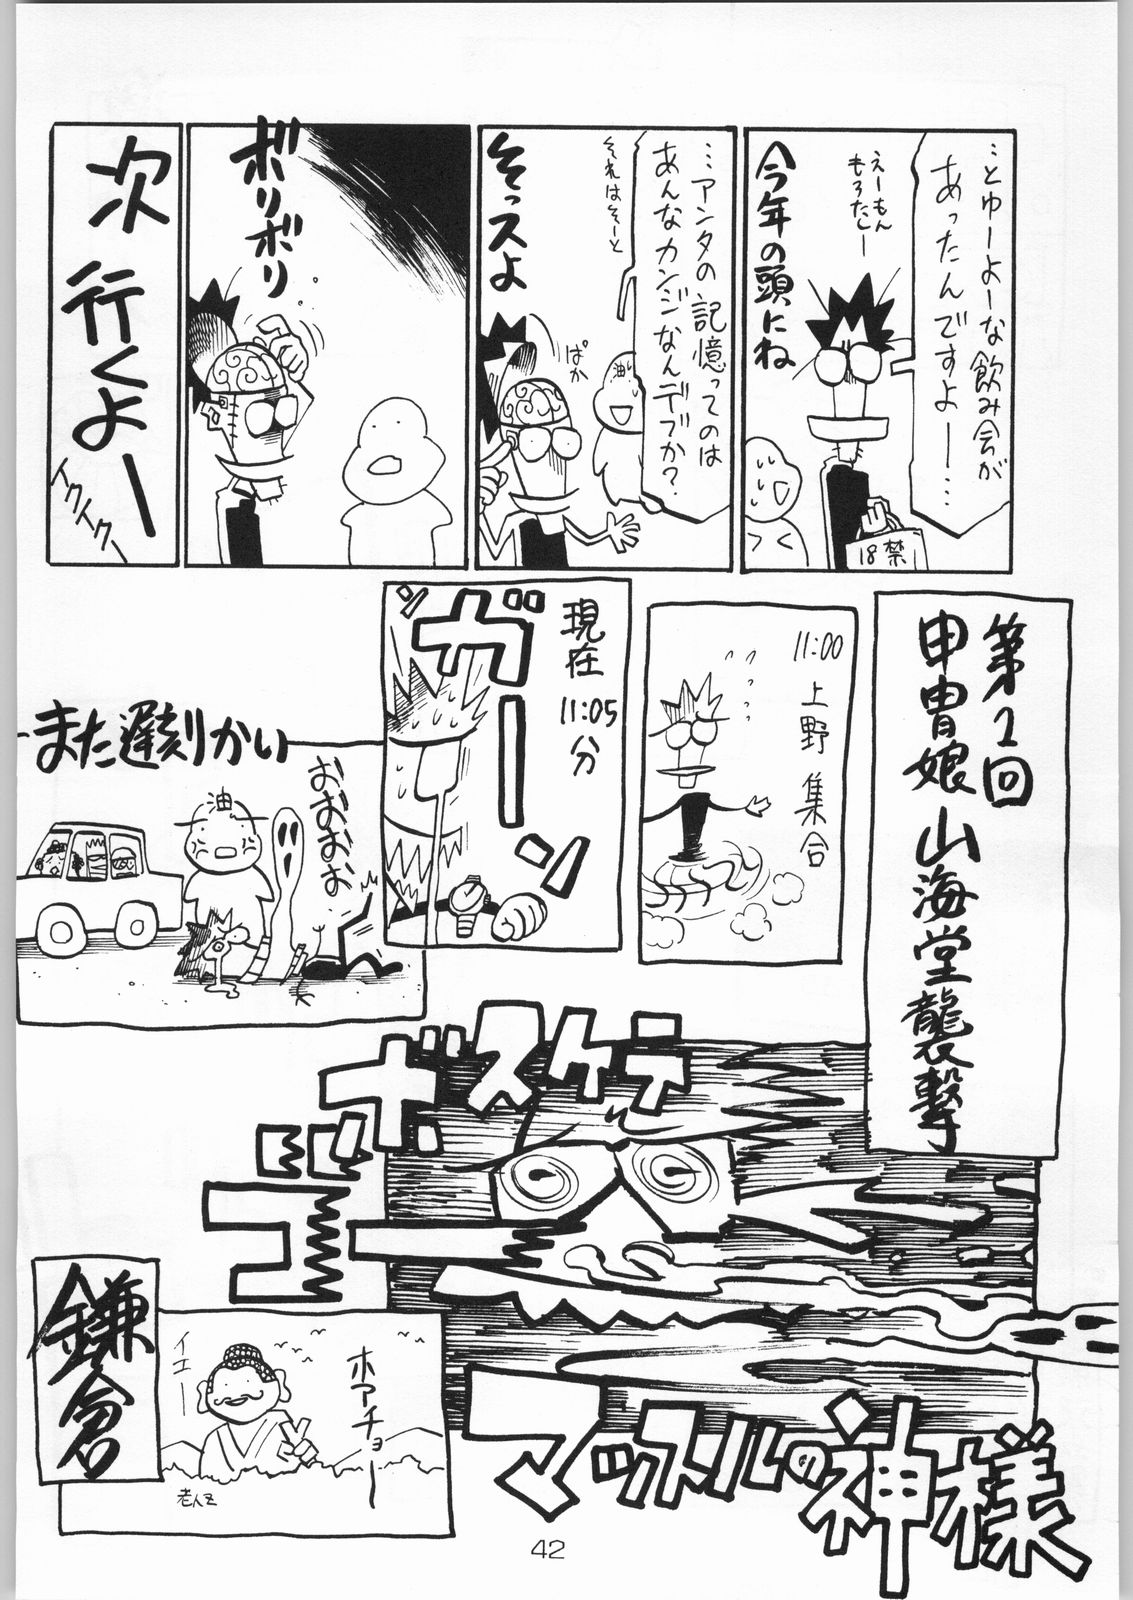 …とゆーよーな飲み会が
あったんですよー…
えーもん
もろたしー
今年の頭にね
18禁
…アンタの記憶ってのは
あんなカンジなんデスか?
それはそーと
そっスよ
ぱか
油
ボリボリ
次行くよー
イクイクー
第1回
甲冑娘山海堂襲撃
11:00
上野集合
現在
11:05分
ガーン
また遅刻かい
油
おおおお
ボスケテ
ゴゴゴー
マッスルの神様
鎌倉
イエー
ホアチョー
老人Z
42